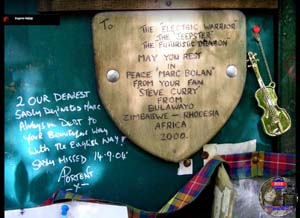 To
THE "ELECTRIC WARRIOR"
"THE JEEPSTER"
THE FUTURISTIC DRAGON"
MAY YOU REST
IN
PEACE "MARC BOLAN"
FROM YOUR FAN
STEVE CURRY
FROM
BULAWAYO
ZIMBABWE - RHODESIA
AFRICA
2000.
2 OUR DEAREST
SADLY DEPARTED MARC
ALWAYS IN DEBT TO
YOUR BEAUTIFUL WAY
WITH THE ENGLISH WAY
SADLY MISSED 14.9.04
X